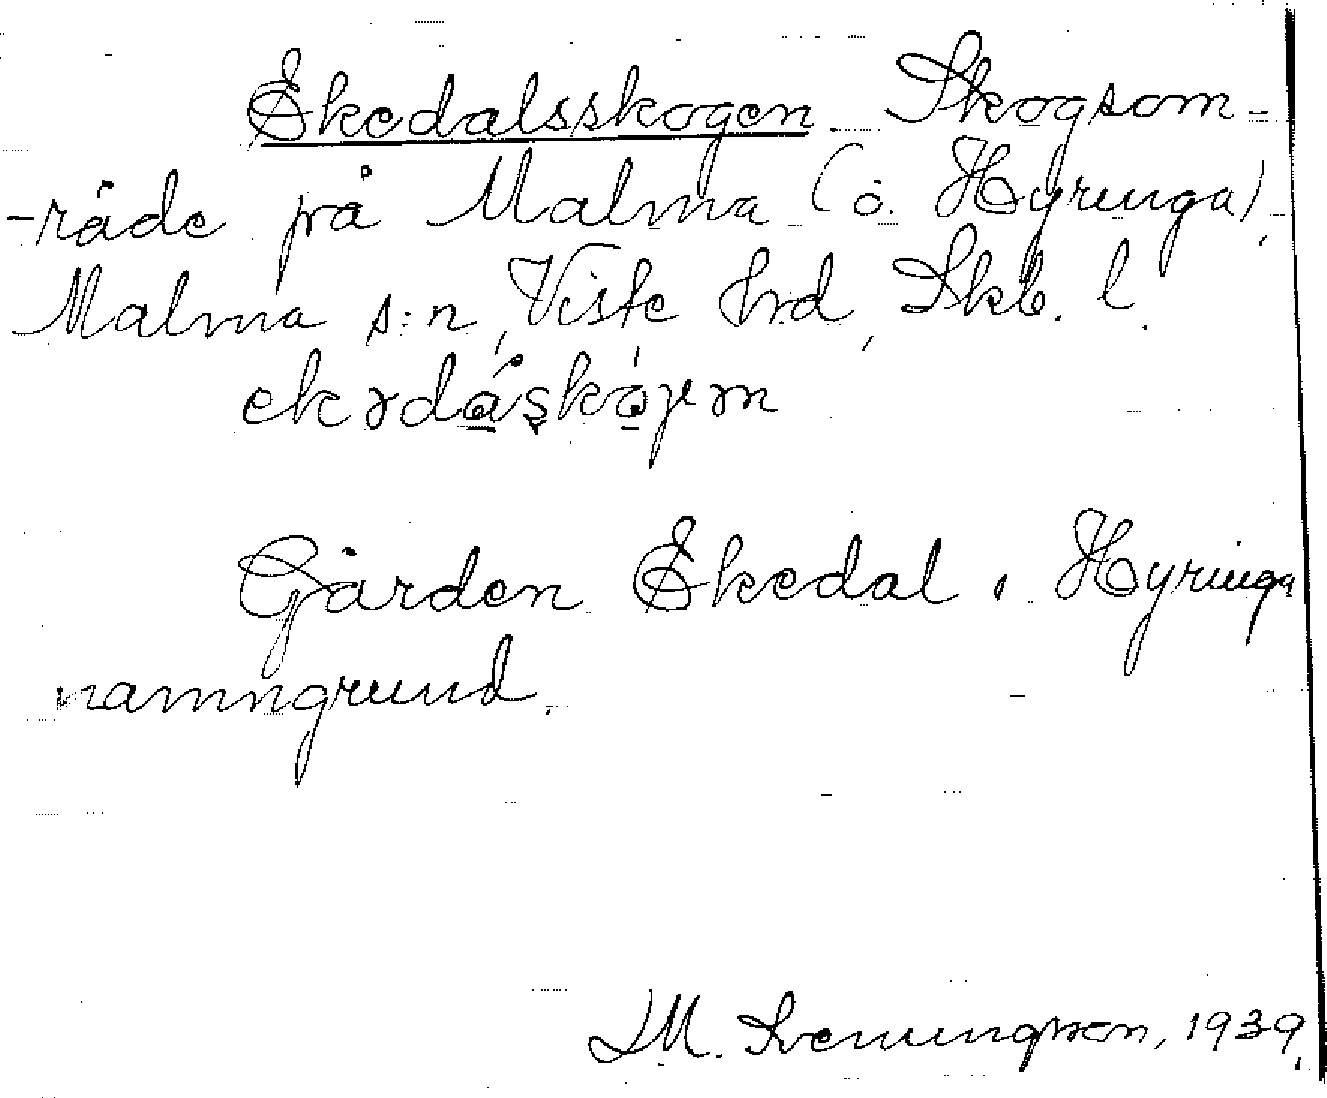 Ekedalsskogen Skogsom-
-råde på Malma (o. Hyringa),
Malma s:n, Viste hrd, Skb. l.
Gården Ekedal i Hyringa
namngrund.
M. Svenungsson, 1939.